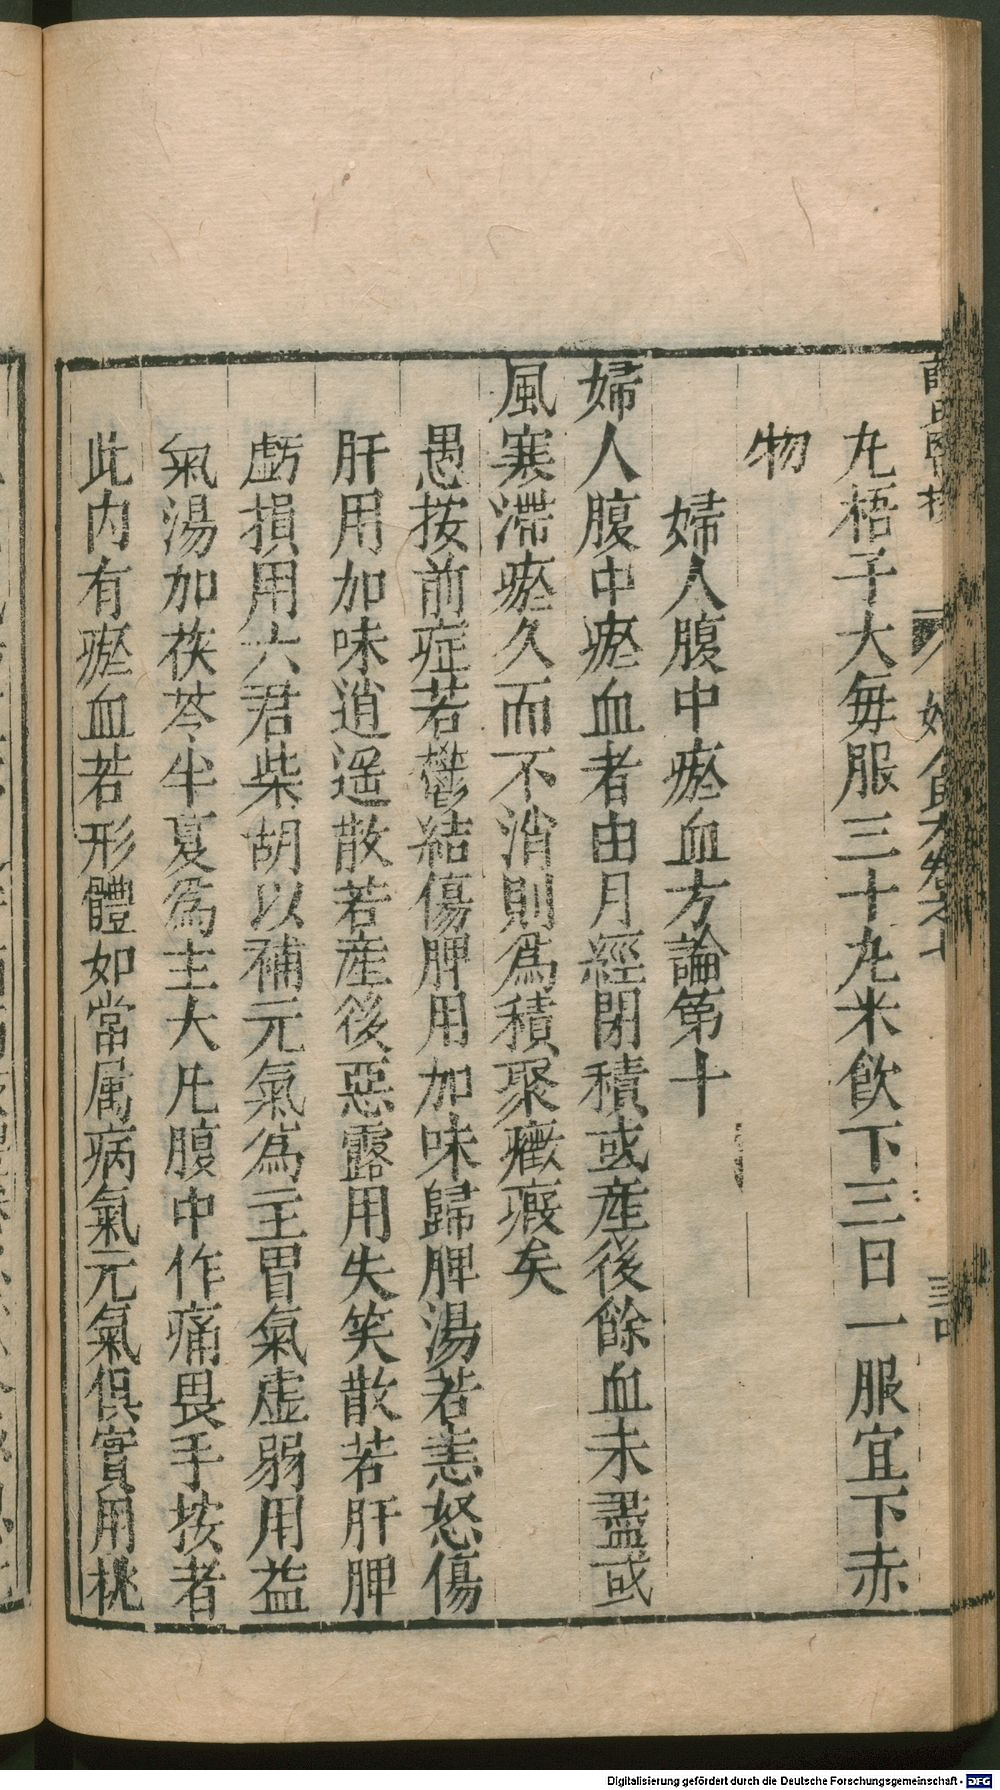 丸梧子大每服三十丸米飲下三日一服宜下赤
物
婦人腹中瘀血方論第十
婦人腹中瘀血者由月經閉積或産後餘血未盡或
風寒滯瘀久而不消則爲積聚癥瘕矣
愚按前症若鬱結傷脾用加味歸脾湯若恚怒傷
肝用加味逍遥散若産後惡露用失笑散若肝脾
虧損用六君柴胡以補元氣爲主胃氣虚弱用益
氣湯加茯苓半夏爲主大凡腹中作痛畏手按者
此内有瘀血若形體如常属病氣元氣俱實用桃
Digitalisierung gefördert durch die Deutsche Forschungsgemeinschaft - DFG